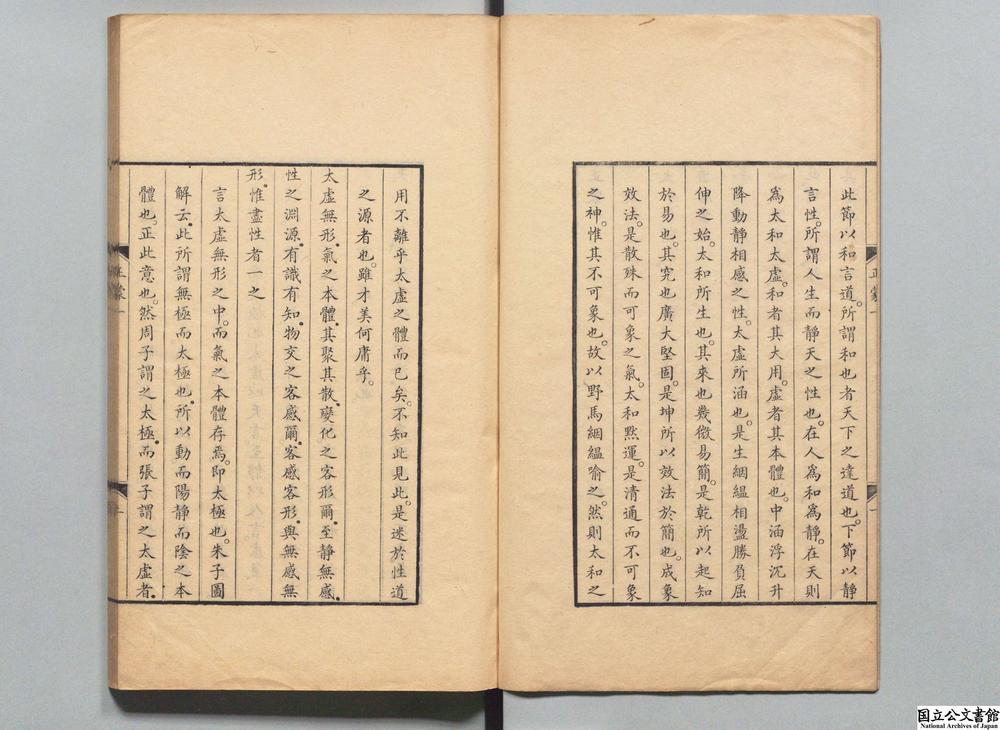 此節以和言道。所謂和也者天下之達道也。下節以靜
言性。所謂人生而靜天之性也。在人為和為靜。在天則
為太和太虛。和者其大用。虛者其本體也。中涵浮沉升
降動靜相感之性。太虛所涵也。是生絪縕相盪勝負屈
伸之始。太和所生也。其來也幾微易簡。是乾所以起知
於易也。其究也廣大堅固。是坤所以效法於簡也。成象
效法。是散殊而可象之氣。太和黙運。是清通而不可象
之神。惟其不可象也。故以野馬絪縕喻之。然則太和之
正蒙一
一
用不離乎太虛之體而已矣。不知此見此。是迷於性道
之源者也。雖才美何庸乎。
太虛無形。氣之本體。其聚其散。變化之客形爾。至靜無感。
性之淵源。有識有知。物交之客感爾。客感客形。與無感無
形。惟盡性者一之
言太虛無形之中。而氣之本體存焉。即太極也。朱子圖
解云。此所謂無極而太極也。所以動而陽靜而陰之本
體也。正此意也。然周子謂之太極。而張子謂之太虛者。
正蒙一
一
国立公文書館
National Archives of Japan